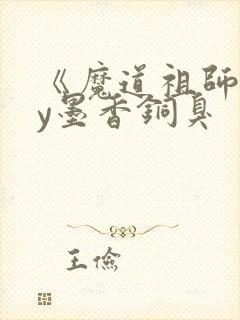 《魔道祖師
y墨香銅臭
王儉